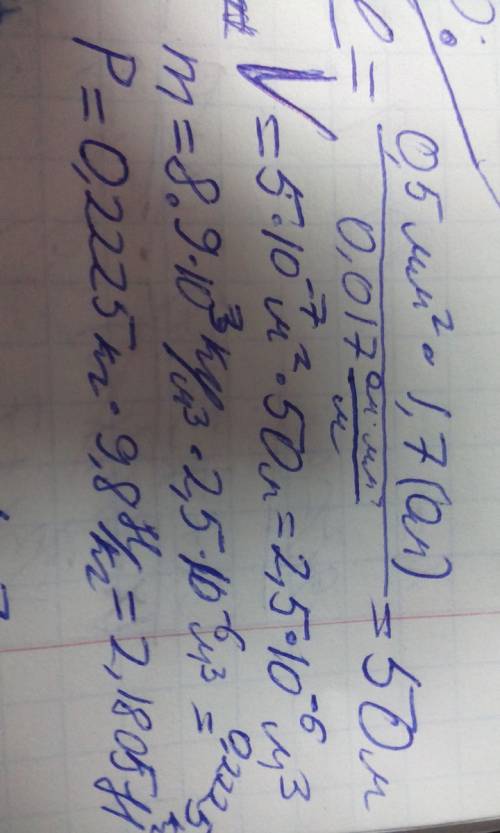 l = 0,5 мм² · 1,7 (Ом) / 0,017 Ом·мм²/м = 50 м
V = 5·10⁻⁷ м² · 50 м = 2,5·10⁻⁶ м³
m = 8,9·10³ кг/м³ · 2,5·10⁻⁶ м³ = 0,2225
P = 0,2225 кг · 9,8 Н/кг = 2,1805 Н